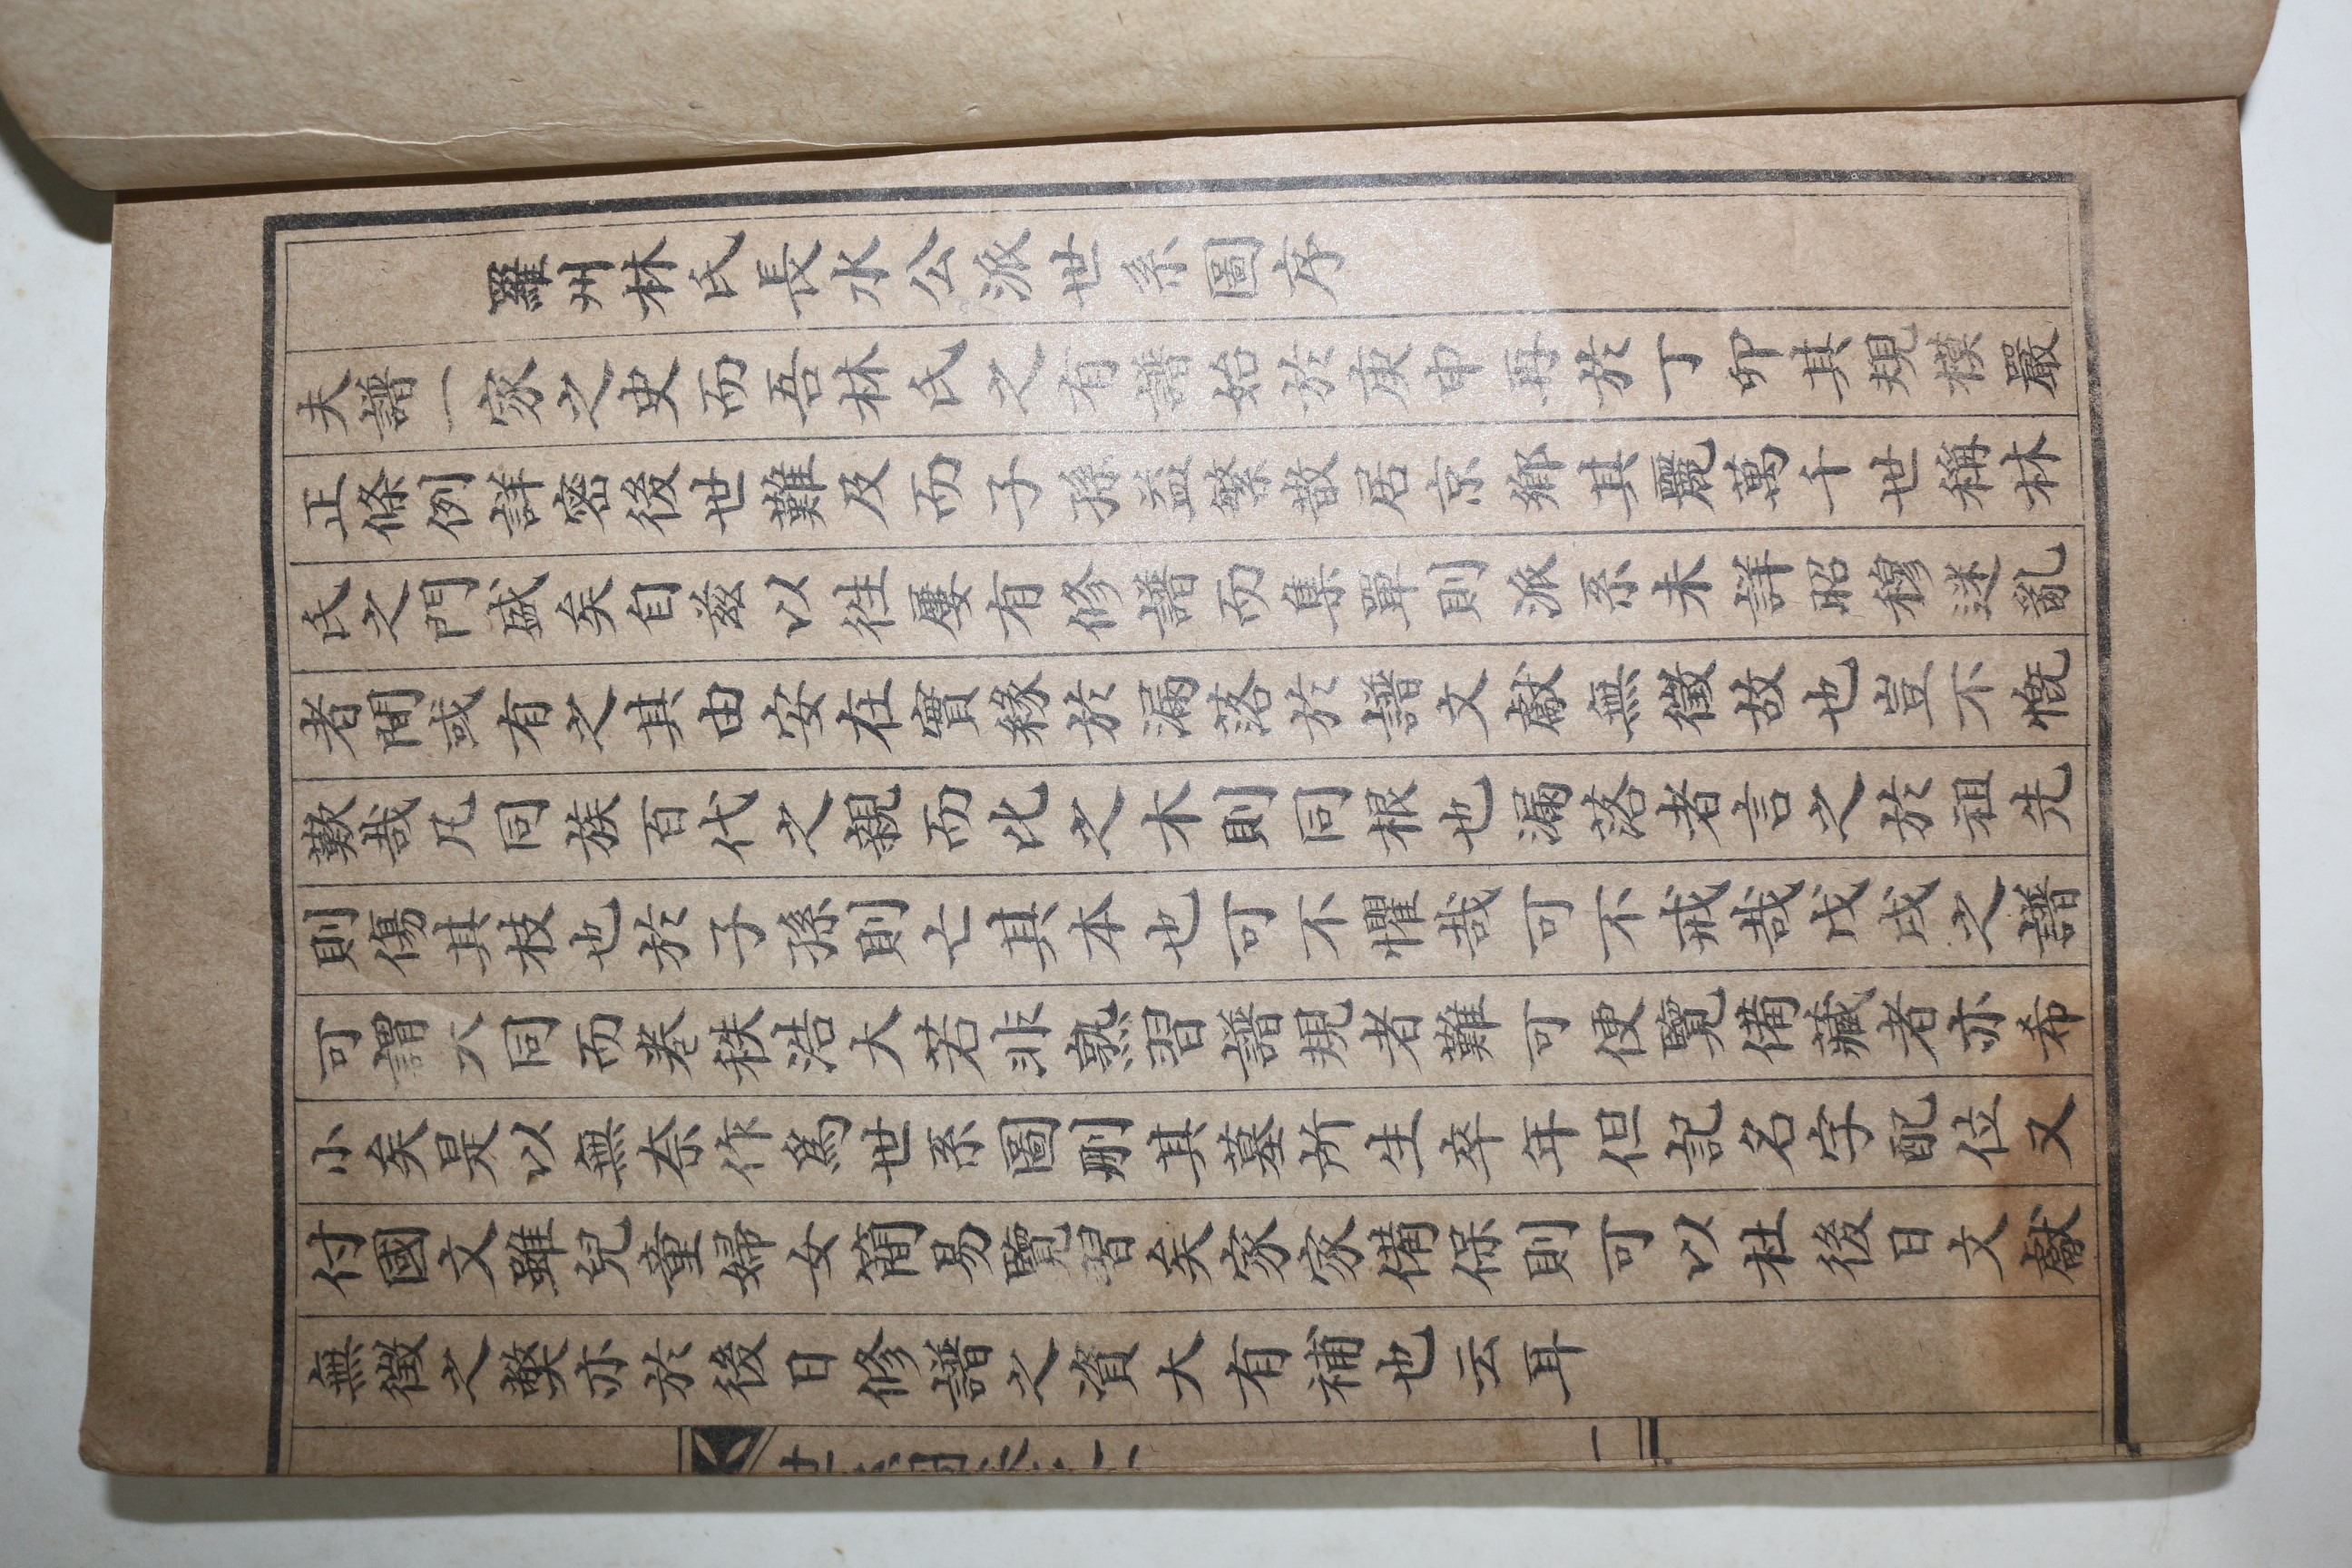 羅州林氏長水公派世系圖序
夫譜一家之史而吾林氏之有譜始於庚申再於丁卯其規模嚴
正條例詳密後世難及而子孫益繁散居京鄉其麗萬千世稱林
氏之門盛矣自茲以徃屢有修譜而集單則派系未詳昭穆迷亂
者間或有之其由安在實緣於漏落於譜文獻無徵故也豈不慨
歎哉凡同族百代之親而比之木則同根也漏落者言之於祖先
則傷其枝也於子孫則亡其本也可不懼哉可不戒哉戊戌之譜
可謂大同而卷秩浩大若非熟習譜規者難可便覽備藏者亦希
小矣是以無奈作爲世系圖刪其墓所生卒年但記名字配位又
付國文雖兒童婦女簡易覽習矣家家備保則可以杜後日文獻
無徵之獘亦於後日修譜之資大有補也云耳
一